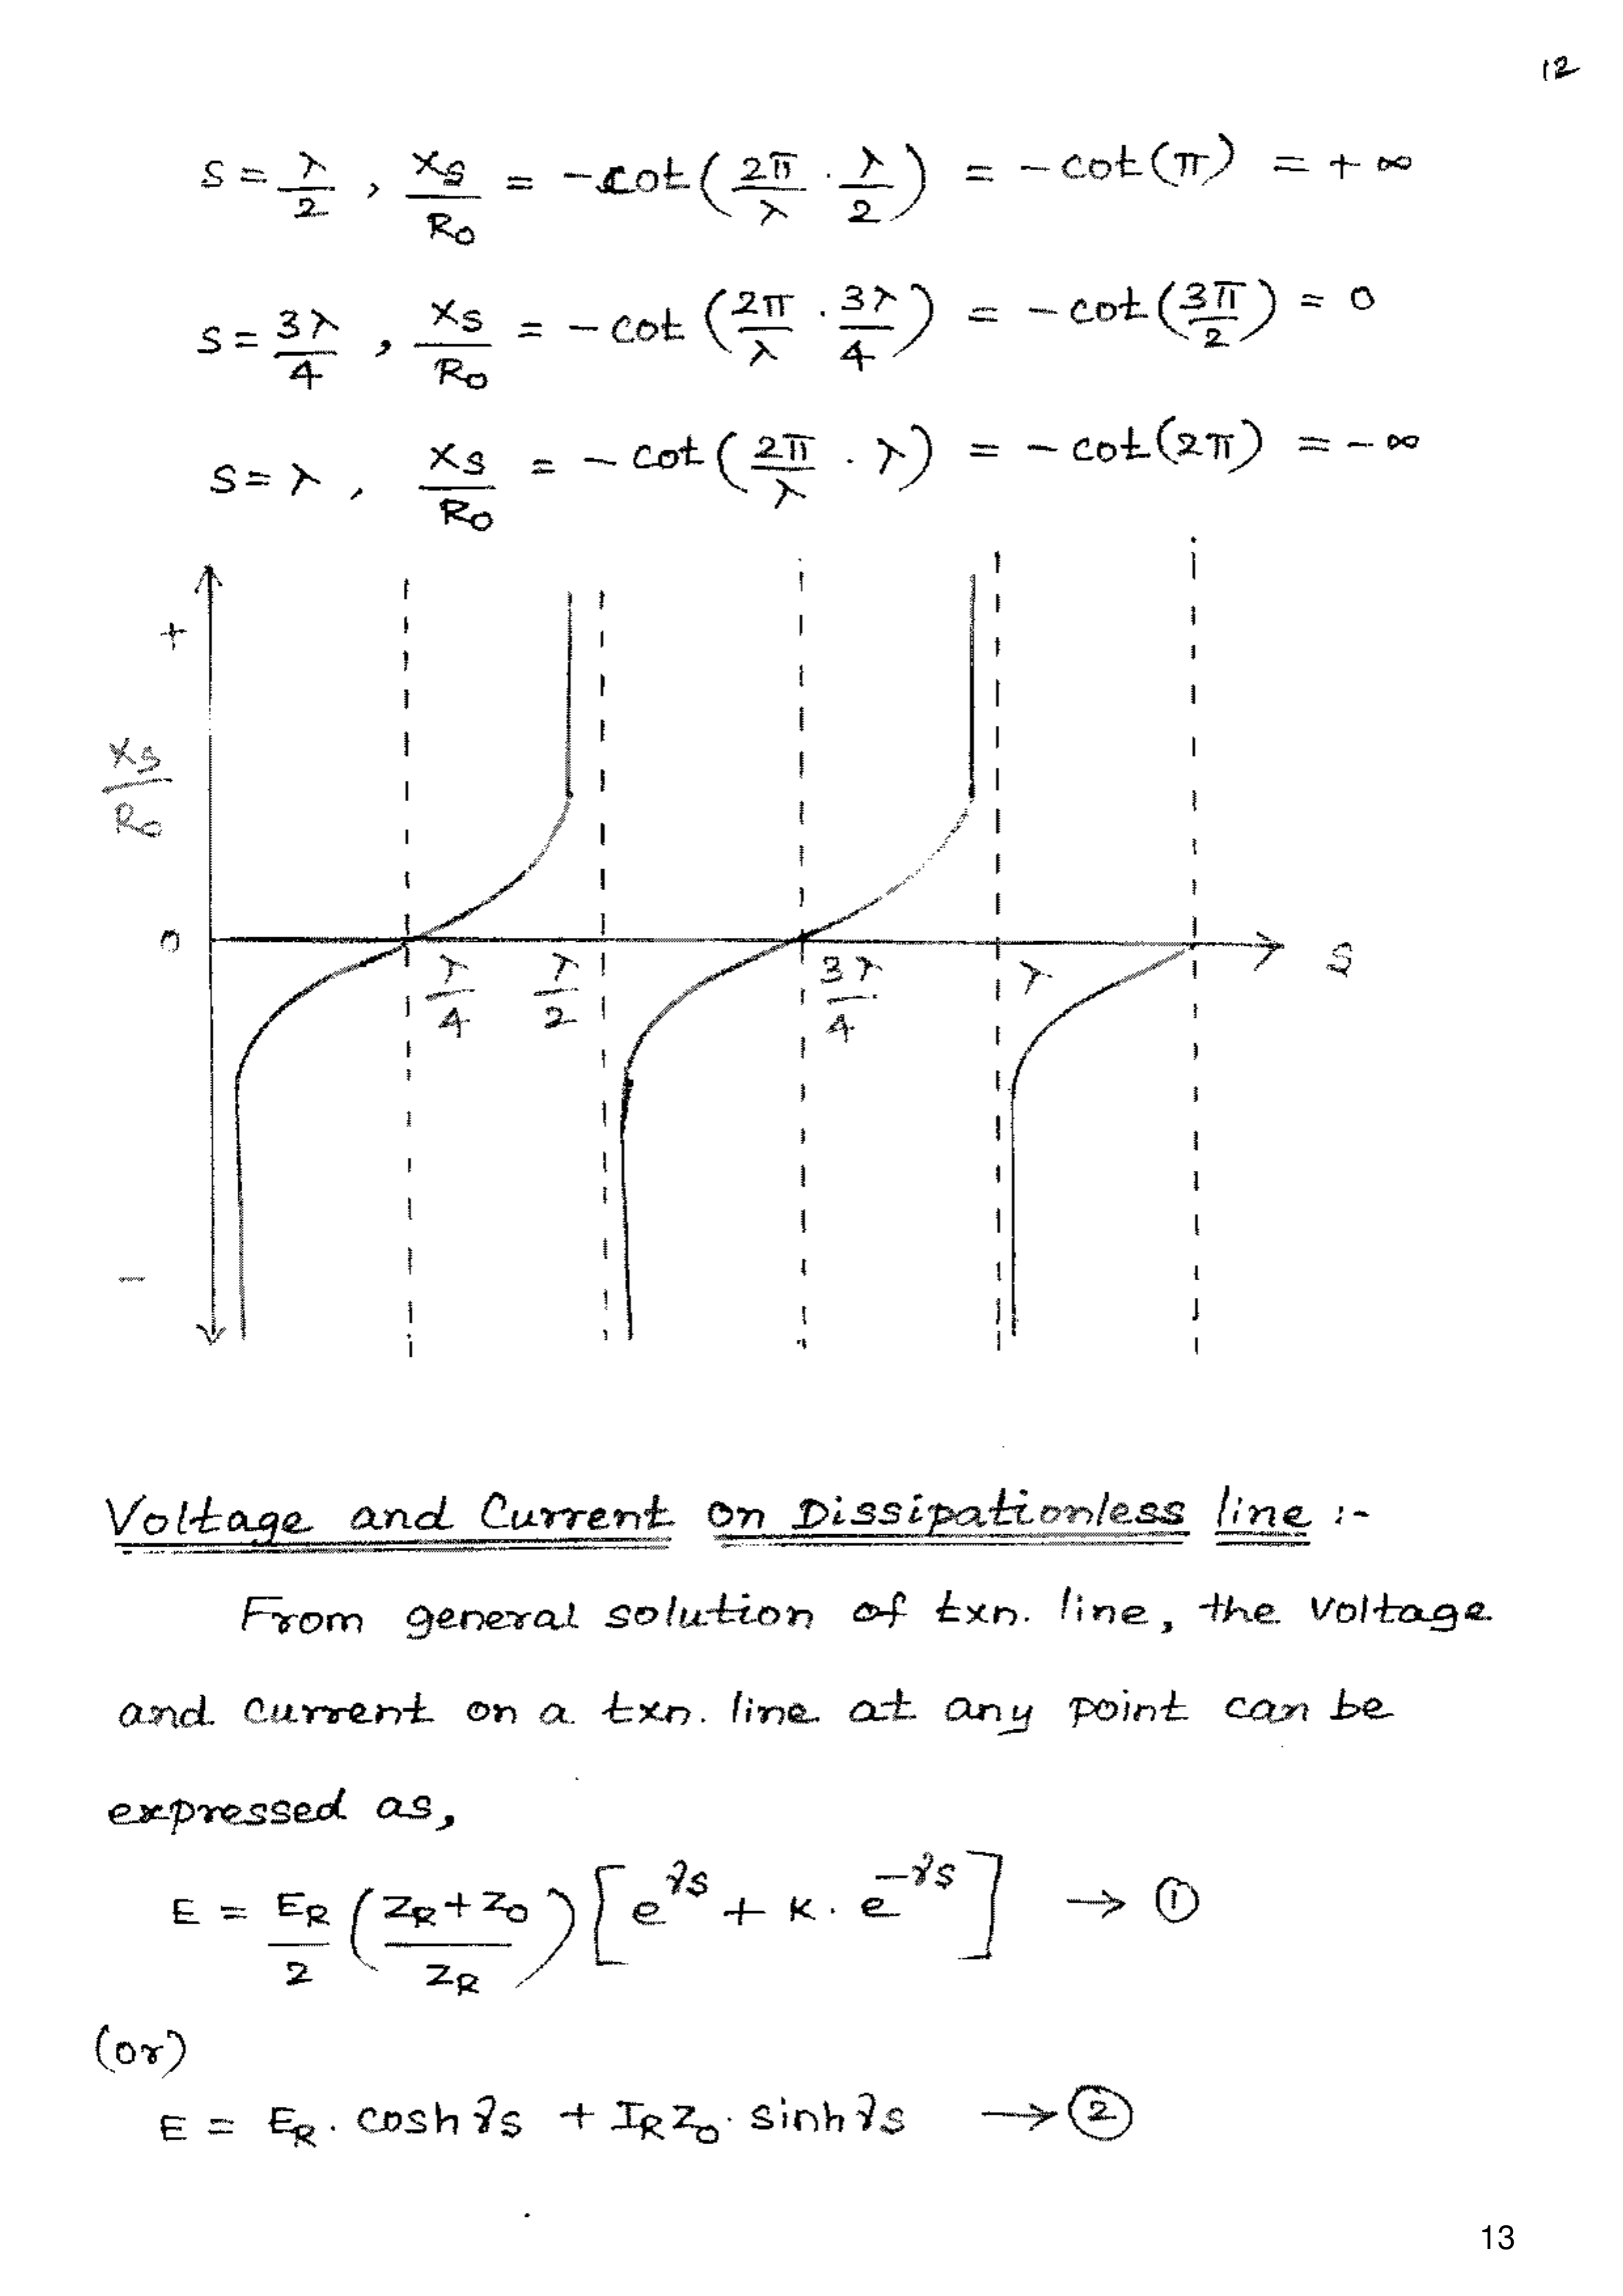 12
S = λ/2 , Xs/R0 = -cot( 2π/λ . λ/2 ) = -cot(π) = +∞
S = 3λ/4 , Xs/R0 = -cot ( 2π/λ . 3λ/4 ) = -cot( 3π/2 ) = 0
S = λ , Xs/R0 = -cot ( 2π/λ . λ ) = -cot(2π) = -∞
+
Xs/R0
0
λ/4 λ/2 3λ/4 λ S
-
Voltage and Current on Dissipationless line :-
From general solution of txn. line, the voltage
and current on a txn. line at any point can be
expressed as,
E = ER/2 ( ZR+Z0 / ZR ) [ e^γs + K. e^-γs ] → ①
(or)
E = ER. cosh γs + IR Z0. sinh γs → ②
13